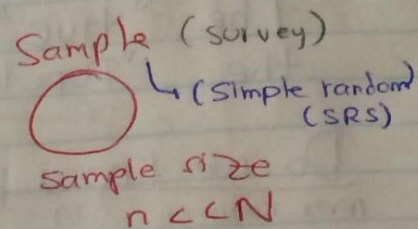 Sample (survey)
(simple random)
(SRS)
sample size
n << N